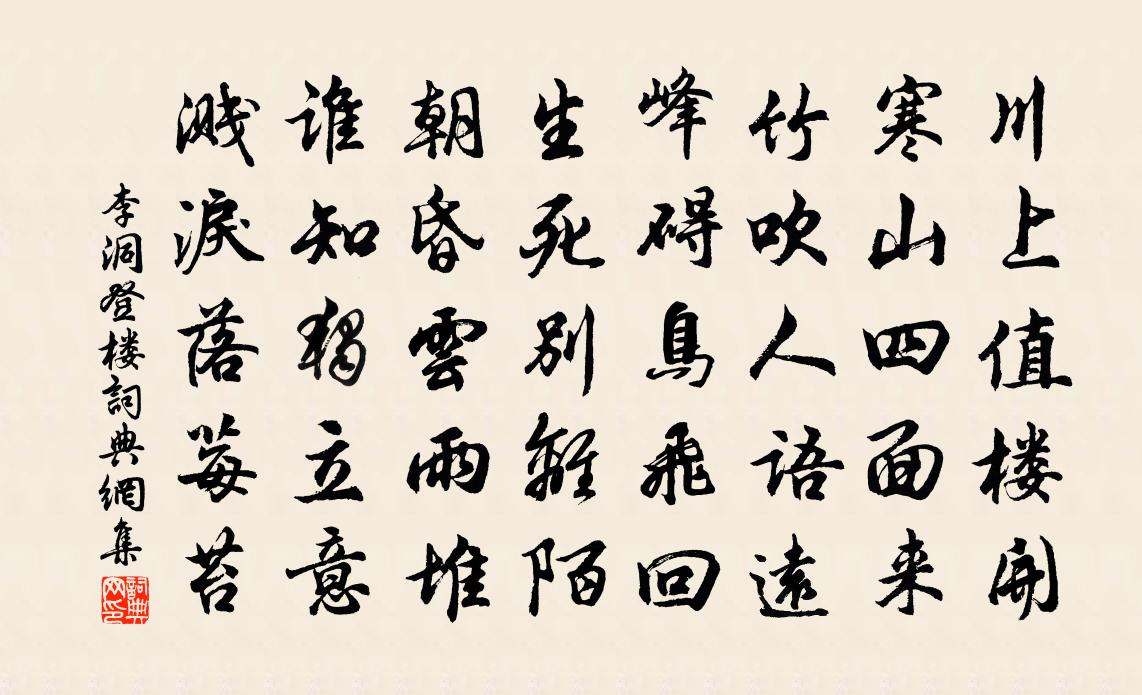 川上值楼开
寒山四面来
竹吹人语遠
峰碍鳥飛回
生死别離陌
朝昏雲雨堆
谁知独立意
溅淚落莓苔
李洞登楼詞典網集
詞典网印